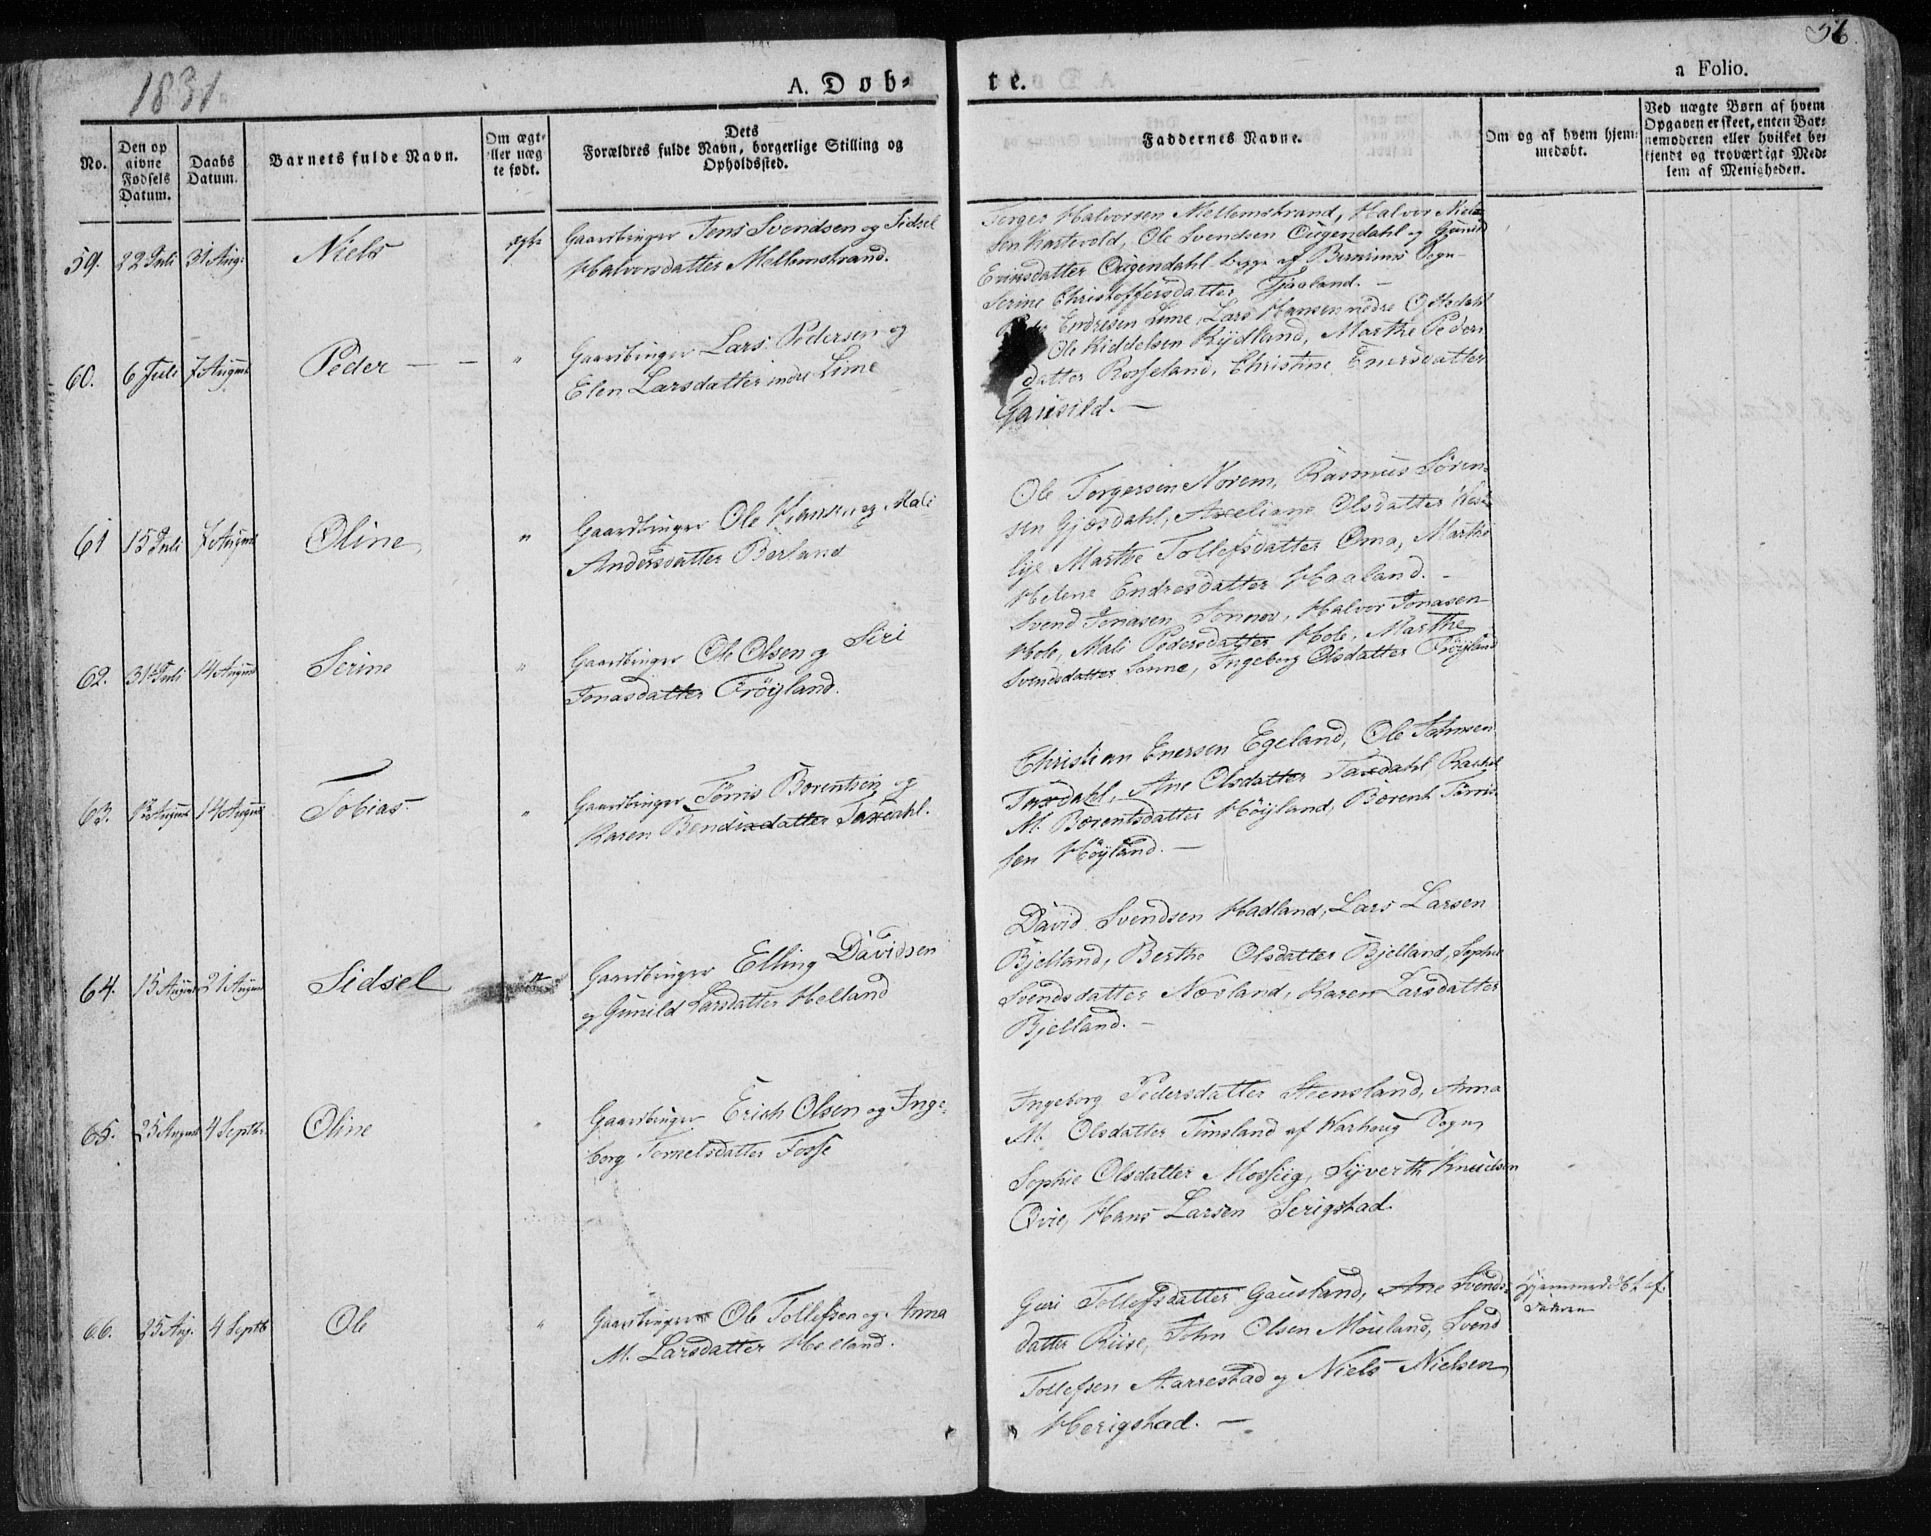 1831
56.
A. Døb-
te.
a Folio.
No.
Den op
givne
Fødsels
Datum.
Daabs
Datum.
Barnets fulde Navn.
Om ægte
eller uæg
te født.
Dets
Forældres fulde Navn, borgerlige Stilling og
Opholdssted.
Faddernes Navne.
Om og af hvem hjem-
medøbt.
Ved uægte Børn af hvem
Opgaven er skeet, enten Bar-
nemoderen eller hvilket be-
kjendt og troværdigt Med-
lem af Menigheden.
59. 22 Juli 31 Aug: Niels ægte
Gaardbruger Jens Svendsen og Sidsel
Halvorsdatter Mellemstrand.
Torger Halvorsen Mellemstrand, Halvor Niel-
sen Ole Svendsen og Gunild
datter af Sogn
Serine Christoffersdatter Tjaaland. –
60. 6 Juli 7 August Peder – – "
Gaardbruger Lars Pedersen og
Elen Larsdatter indre Lime
Endresen Lime, Lars Hansen nedre
Ole Kiddelsen Rydland, Marthe Peders
datter Rosseland, Christine Enersdatter
–
61 15 Juli 7 August Oline "
Gaardbruger Ole Hansen og Mali
Andersdatter Berland
Ole Torgersen Norem, Rasmus Sören-
sen Gjesdahl, Axeliane Olsdatter West-
lye Marthe Tollefsdatter Oma, Marthe
Helene Endresdatter Haaland. –
62. 31 Juli 14 August Serine "
Gaardbruger Ole Olsen og Siri
Jonasdatter Fröyland.
Svend Jonasen Halvor Jonasen
Hole, Mali Pedersdatter Hole, Marthe
Svendsdatter Ingeborg Olsdatter Fröyland
63. August 14 August Tobias "
Gaardbruger Törris Borentsen og
Karen Bendixdatter Taxdahl.
Christian Enersen Egeland, Ole
Taxdahl, Ane Olsdatter Taxdahl Rachel
M. Borentsdatter Höyland, Borent Törris
sen Höyland. –
64. 15 August 21 August Sidsel "
Gaardbruger Elling Davidsen
og Gunild Larsdatter Helland
David Svendsen Hadland, Lars Larsen
Bjelland, Berthe Olsdatter Bjelland, Sophie
Svendsdatter Nevland, Karen Larsdatter
Bjelland. –
65. 25 August 4 Septbr. Oline "
Gaardbruger Erich Olsen og Inge-
borg datter Fosse
Ingeborg Pedersdatter Steensland, Anna
M. Olsdatter Timsland af Warhoug Sogn,
Sophie Olsdatter Mossiig, Syverth Knudsen
Qvie, Hans Larsen Serigstad.
66. 25 Aug. 4 Septb Ole "
Gaardbruger Ole Tollefsen og Anna
M. Larsdatter Helland.
Guri Tollefsdatter Gausland, Ane Svends-
datter Riise, John Olsen Mouland, Svend
Tollefsen Aarrestad og Niels Nielsen
Herigstad. –
Hjemmedöbt af